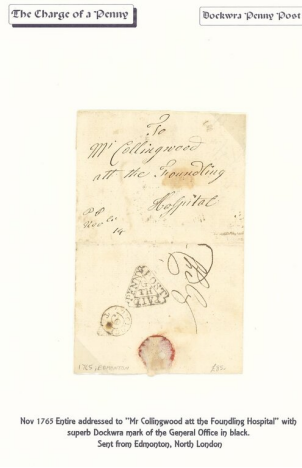 The Charge of a Penny
Dockwra Penny Post
To
Mr Collingwood
att the Foundling
Hospital
1765 EDMONTON
Nov 1765 Entire addressed to "Mr Collingwood att the Foundling Hospital" with
superb Dockwra mark of the General Office in black.
Sent from Edmonton, North London